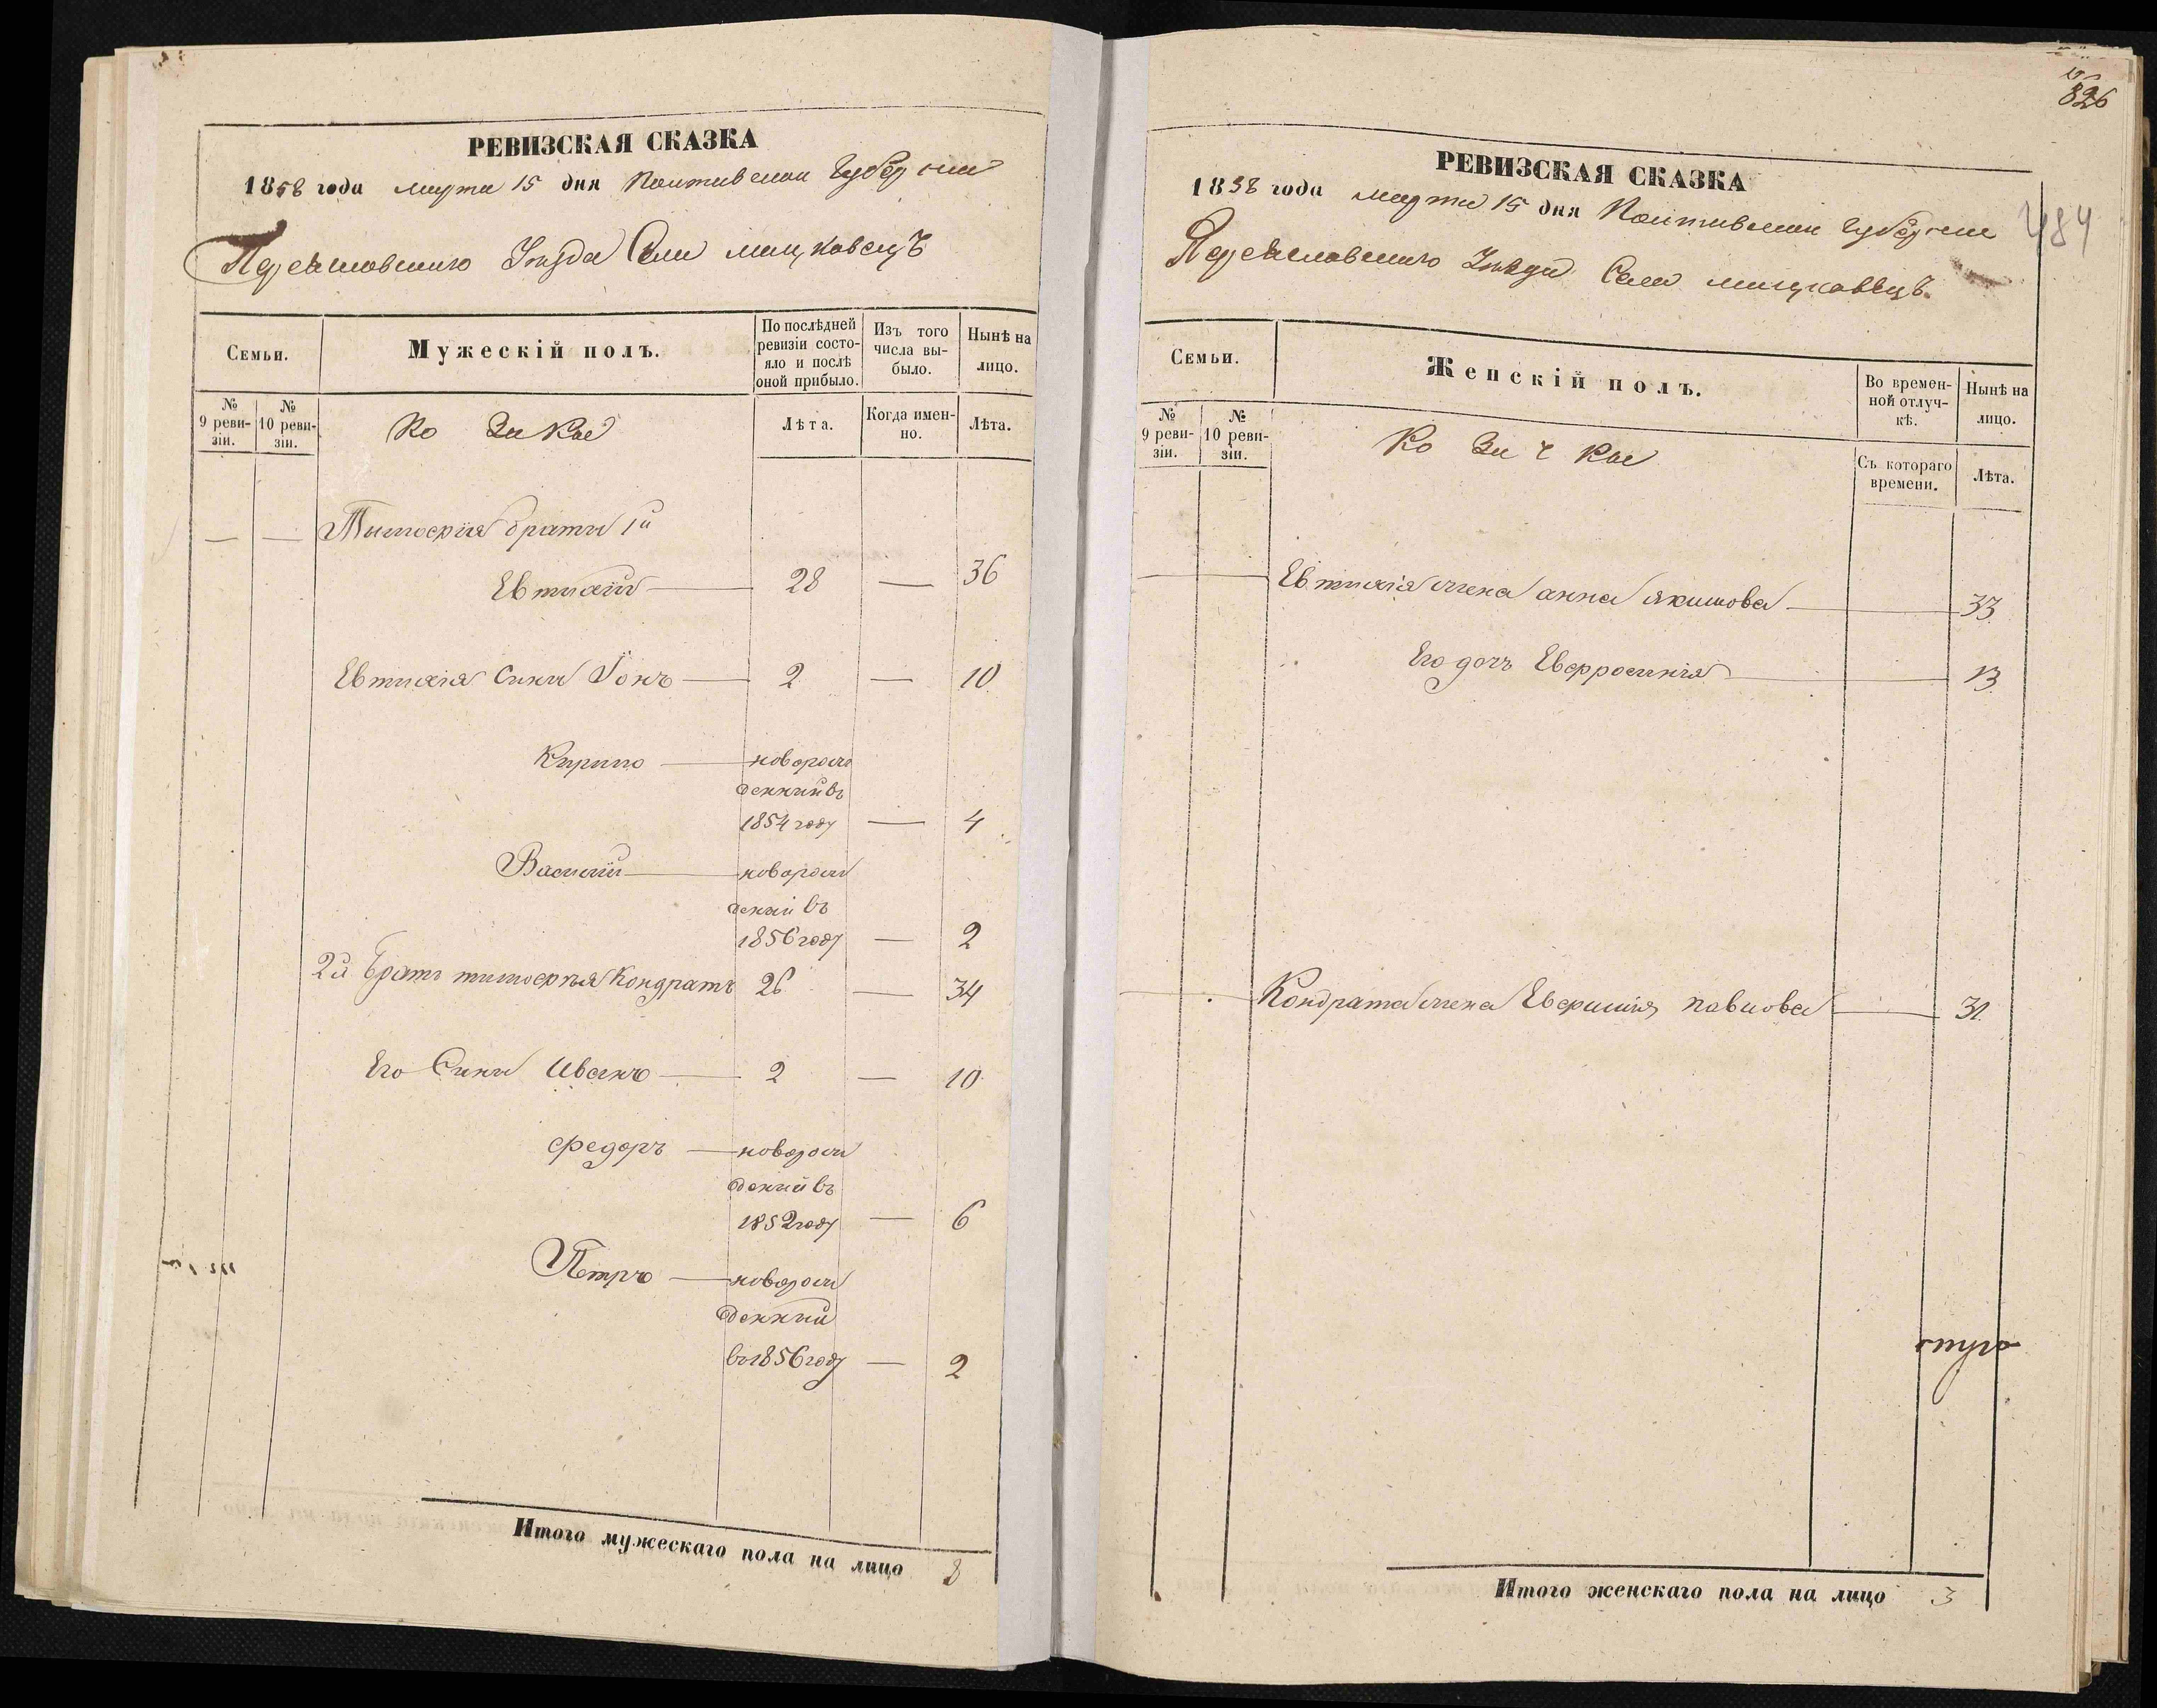 РЕВИЗСКАЯ СКАЗКА
1858 года марта 15 дня Полтавской Губернии
Переяславского Уезда Села мацковецъ
Семьи.
Мужескій полъ.
По послѣдней ревизіи состояло и послѣ оной прибыло.
Изъ того числа выбыло.
Нынѣ на лицо.
№ 9 ревизіи.
№ 10 ревизіи.
Ко заки
Лѣта.
Когда именно.
Лѣта.
Тимофея брати 1й
Евтихий 28 — 36
Евтихія Сини Іонъ 2 — 10
Кирило новорож
денний въ
1854 году — 4
Василий новорож
деный въ
1856 году — 2
2й братъ тимофея Кондратъ 26 — 34
Его Сини Иванъ 2 — 10
федоръ новорож
деный въ
1852 году — 6
Петръ новорож
денний
въ 1856 году — 2
Итого мужескаго пола на лицо 8
826
РЕВИЗСКАЯ СКАЗКА
1858 года марта 15 дня Полтавской Губернии
484
Переяславского Уезда Села мацковецъ.
Семьи.
Женскій полъ.
Во временной отлучкѣ.
Нынѣ на лицо.
№ 9 ревизіи.
№ 10 ревизіи.
Ко за ч ки
Съ котораго времени.
Лѣта.
Евтихія жена анна якимова 33
Его дочь Евфросинія 13
Кондрата жена Евфимія павлова 31
Итого женскаго пола на лицо 3